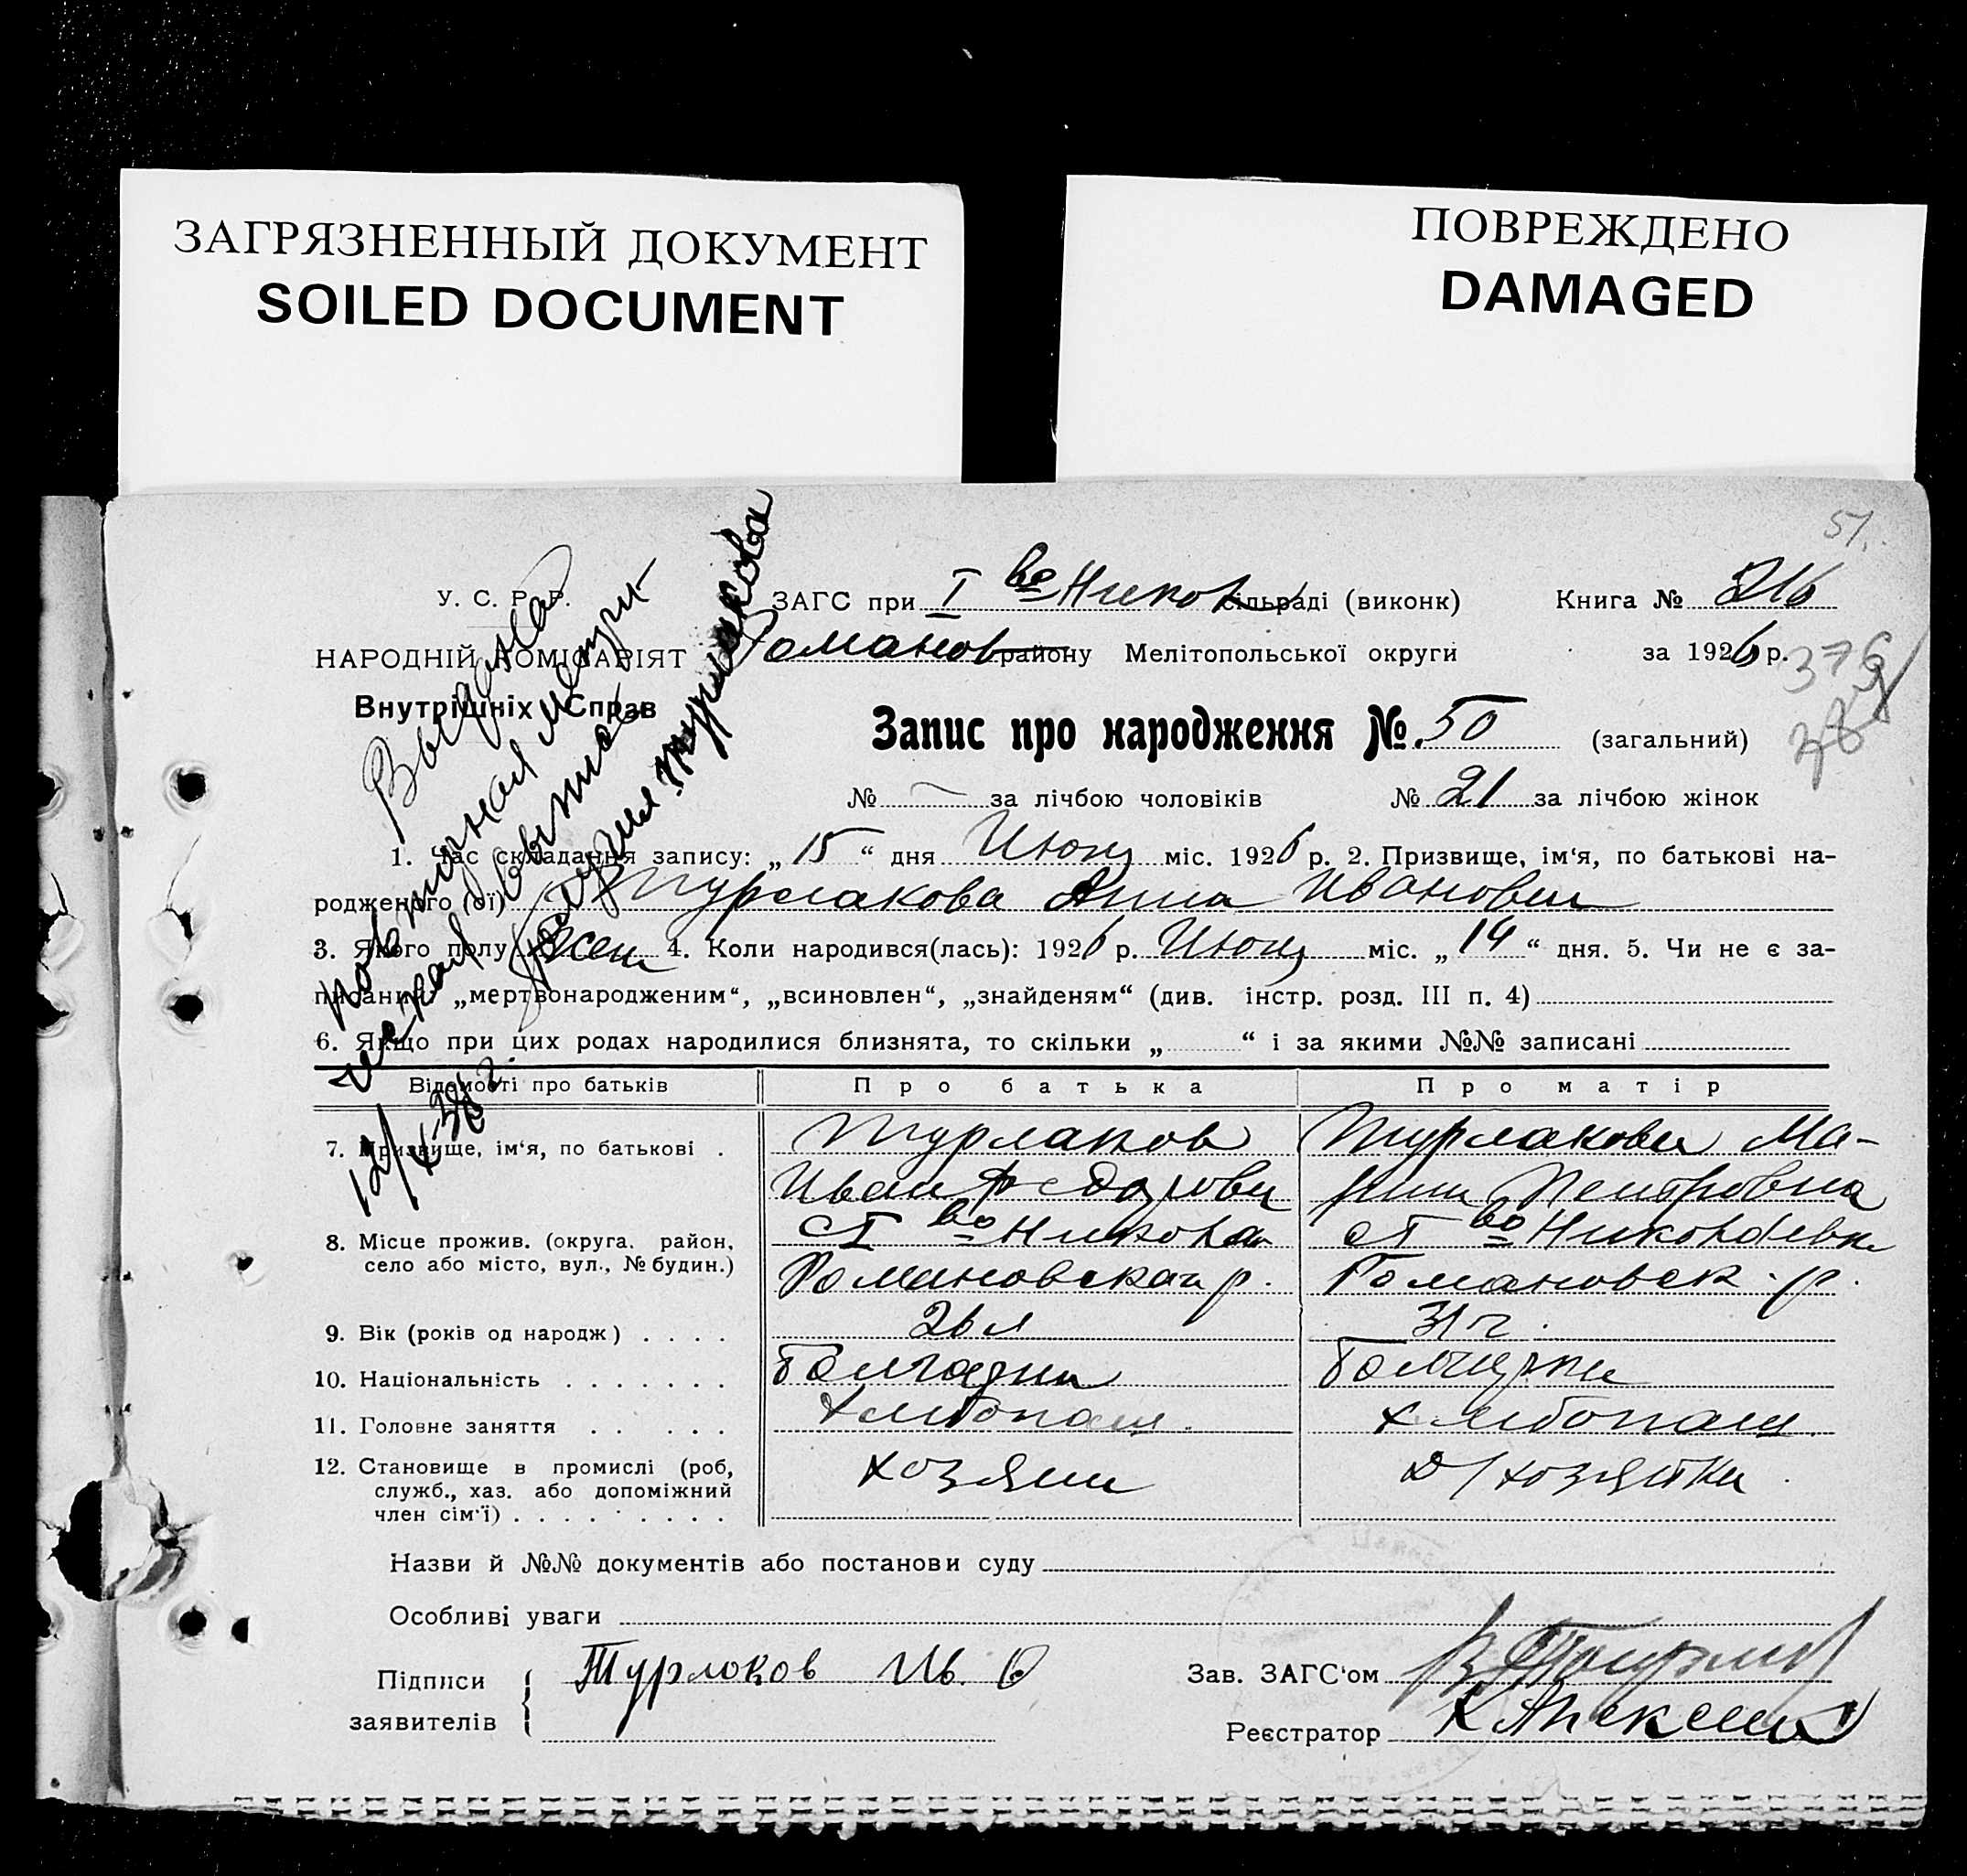 ЗАГРЯЗНЕННЫЙ ДОКУМЕНТ
SOILED DOCUMENT
ПОВРЕЖДЕНО
DAMAGED
51.
У. С. Р. Р.
НАРОДНІЙ КОМІСАРІЯТ
Внутрішніх Справ
ЗАГС при I во Никол сільраді (виконк) Книга № 216
Романов району Мелітопольської округи за 1926 р.
376
Запис про народження № 50 (загальний)
№ — за лічбою чоловіків № 21 за лічбою жінок
Выдана
повторная метри-
ческая выпись
12/X-38 г.
Турлакова
1. Час складання запису: „15“ дня Июня міс. 1926 р. 2. Призвище, ім‘я, по батькові на-
родженого (ої) Турлакова Анна Ивановна
3. Якого полу жен 4. Коли народився(лась): 1926 р. Июня міс. „14“ дня. 5. Чи не є за-
писаний: „мертвонародженим“, „всиновлен“, „знайденям“ (див. інстр. розд. III п. 4)
6. Якщо при цих родах народилися близнята, то скільки „ “ і за якими №№ записані
Відомості про батьків Про батька Про матір
7. Призвище, ім‘я, по батькові . Турлаков Турлакова Ма-
Иван Федорови рина Петровна
8. Місце прожив. (округа, район, с I во Никола с I во Николаевка
село або місто, вул., № будин.) Романовская р. Романовск. р.
9. Вік (років од народж) . . . . 26 л 31 г.
10. Національність . . . . . . . Болгарин Болгарка
11. Головне заняття . . . . . хлибопаш. хлибопаш.
12. Становище в промислі (роб, хозяин д/хозяйки
служб., хаз. або допоміжний
член сім‘ї) . . . . . . . . .
Назви й №№ документів або постанови суду
Особливі уваги
Підписи
заявителів
Турлоков Ив. Ф
Зав. ЗАГС‘ом
Реєстратор К Алексеев